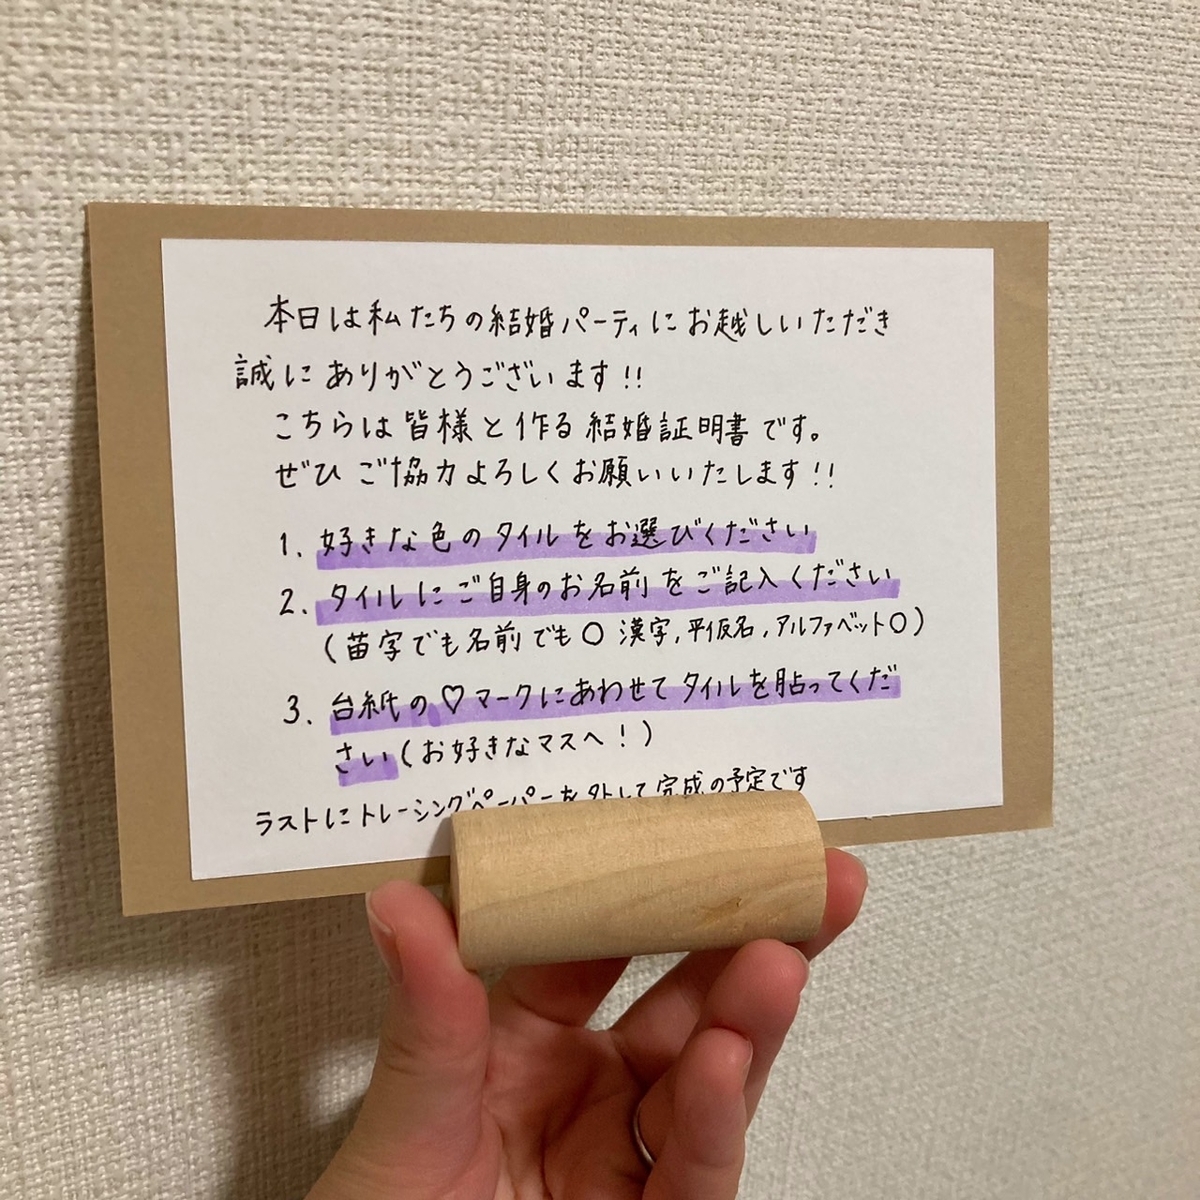 本日は私たちの結婚パーティにお越しいただき
誠にありがとうございます!!
こちらは皆様と作る結婚証明書です。
ぜひご協力よろしくお願いいたします!!
1. 好きな色のタイルをお選びください
2. タイルにご自身のお名前をご記入ください
(苗字でも名前でも○ 漢字,平仮名,アルファベット○)
3. 台紙の♡マークにあわせてタイルを貼ってくだ
さい(お好きなマスへ!)
ラストにトレーシングペーパーを外して完成の予定です